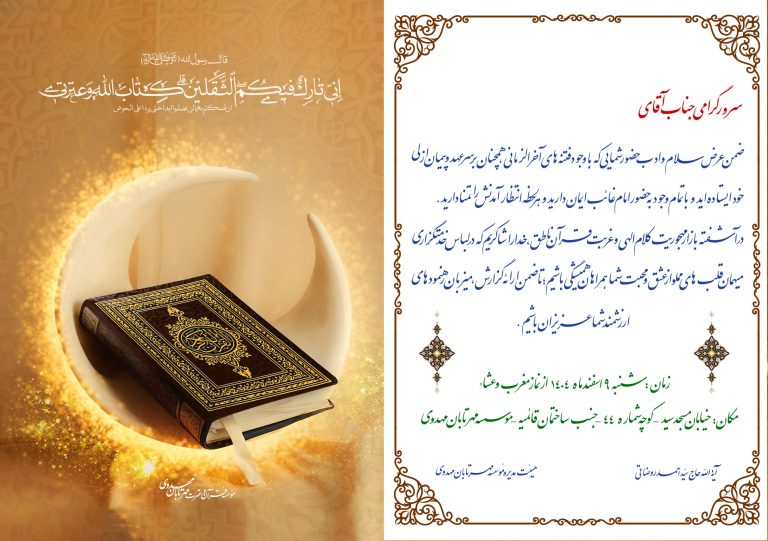 قال رسول الله
إنی تارک فیکم الثقلین کتاب الله وعترتی
ان تمسکتم بهما لن تضلوا ابدا حتی یردا علی الحوض
موسسه قرآن و عترت مهر تابان مهدوی
سرور گرامی جناب آقای
ضمن عرض سلام و ادب حضور شمایی که با وجود فتنه های آخرالزمانی همچنان بر سر عهد و پیمان ازلی
خود ایستاده اید و با تمام وجود به حضور امام غائب ایمان دارید و هر لحظه انتظار آمدنش را تمنا دارید.
در آشفته بازار مهجوریت کلام الهی و غربت قرآن ناطق، خدا را شاکریم که در لباس خدمتگزاری
میهمان قلب های مملو از عشق و محبت شما همراهان همیشگی باشیم؛ تا ضمن ارائه گزارش، میزبان رهنمودهای
ارزشمند شما عزیزان باشیم.
زمان: شنبه ۹ اسفند ماه ۱۴۰۴ از نماز مغرب و عشاء
مکان: خیابان مسجد سید - کوچه شماره ۴۴ - جنب ساختمان قائمیه - موسسه مهر تابان مهدوی
آیة الله حاج سید احمد رضائی
هیئت مدیره مؤسسه مهر تابان مهدوی